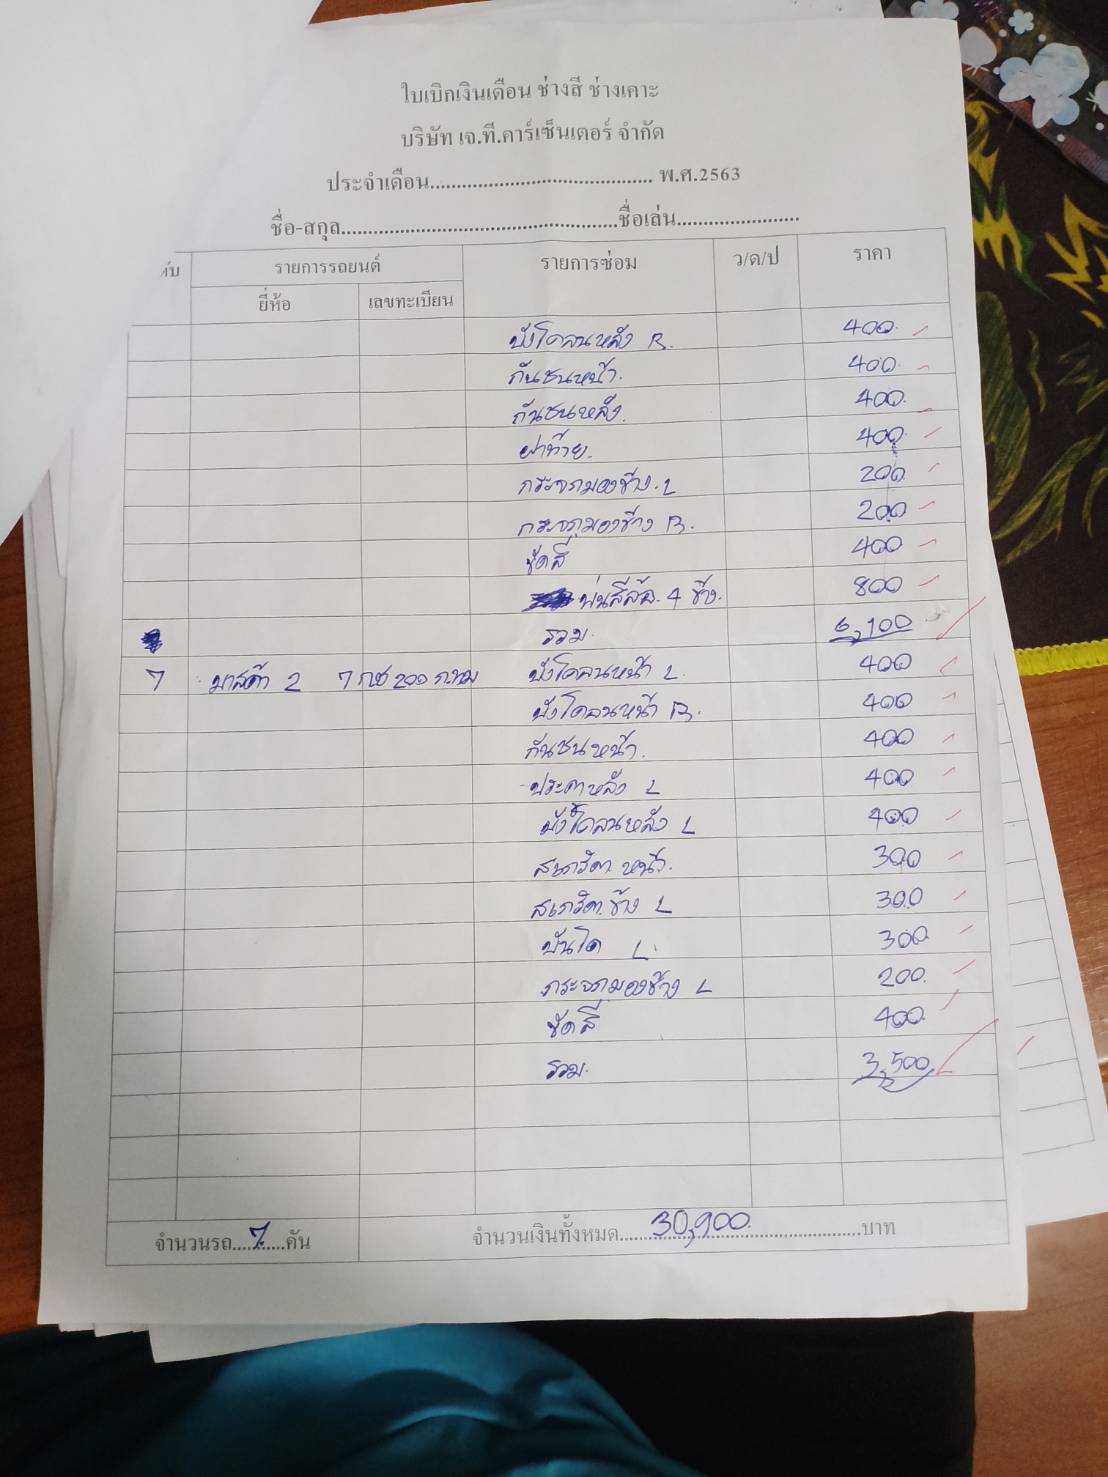 ใบเบิกเงินเดือน ช่างสี ช่างเคาะ
บริษัท เจ.ที.คาร์เซ็นเตอร์ จำกัด
ประจำเดือน.......................................... พ.ศ.2563
ชื่อ-สกุล....................................................ชื่อเล่น.......................
รายการรถยนต์ รายการซ่อม ว/ด/ป ราคา
ยี่ห้อ เลขทะเบียน
บังโคลนหลัง R. 400.
กันชนหน้า. 400.
กันชนหลัง. 400.
ฝาท้าย. 400.
กระจกมองข้าง. L 200
กระจกมองข้าง R. 200
ขัดสี 400
พ่นสีล้อ. 4 ข้าง. 800
รวม. 6,100
7 มาสด้า 2 7 กช 200 กทม บังโคลนหน้า L 400
บังโคลนหน้า R. 400
กันชนหน้า. 400
ประตูหลัง L 400
บังโคลนหลัง L 400
สเกิร์ต หน้า. 300
สเกิร์ต ข้าง L 300
บันได L. 300
กระจกมองข้าง L 200.
ขัดสี 400
รวม. 3,500
จำนวนรถ....7....คัน จำนวนเงินทั้งหมด......30,900......บาท